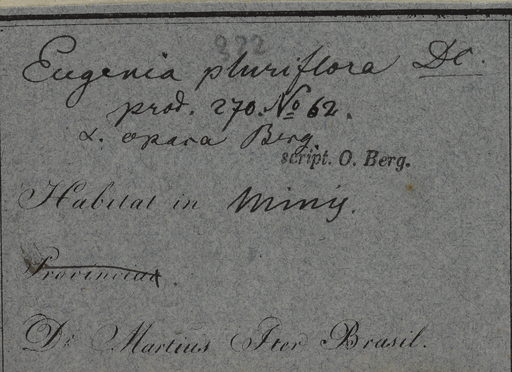 222
Eugenia pluriflora DC.
prod. 270. No 62.
α. opaca Berg.
script. O. Berg.
Habitat in Minis.
Provincia
Dr. Martius Iter Brasil.